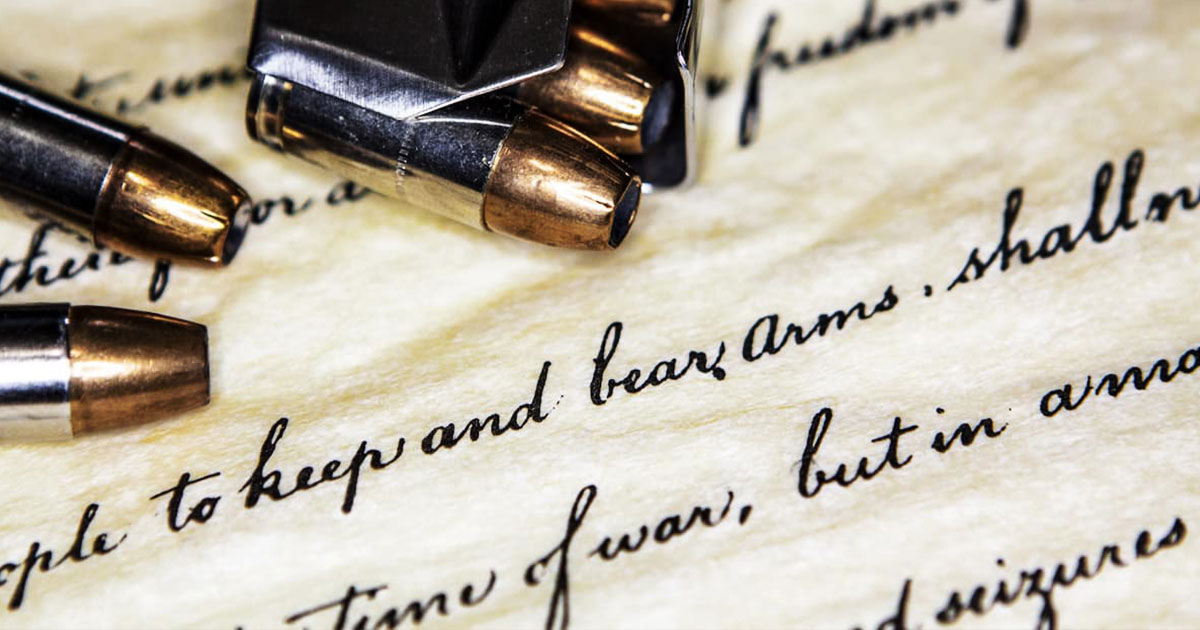 freedom
for a
the
ople to keep and bear arms, shall n
time of war, but in a ma
d seizures